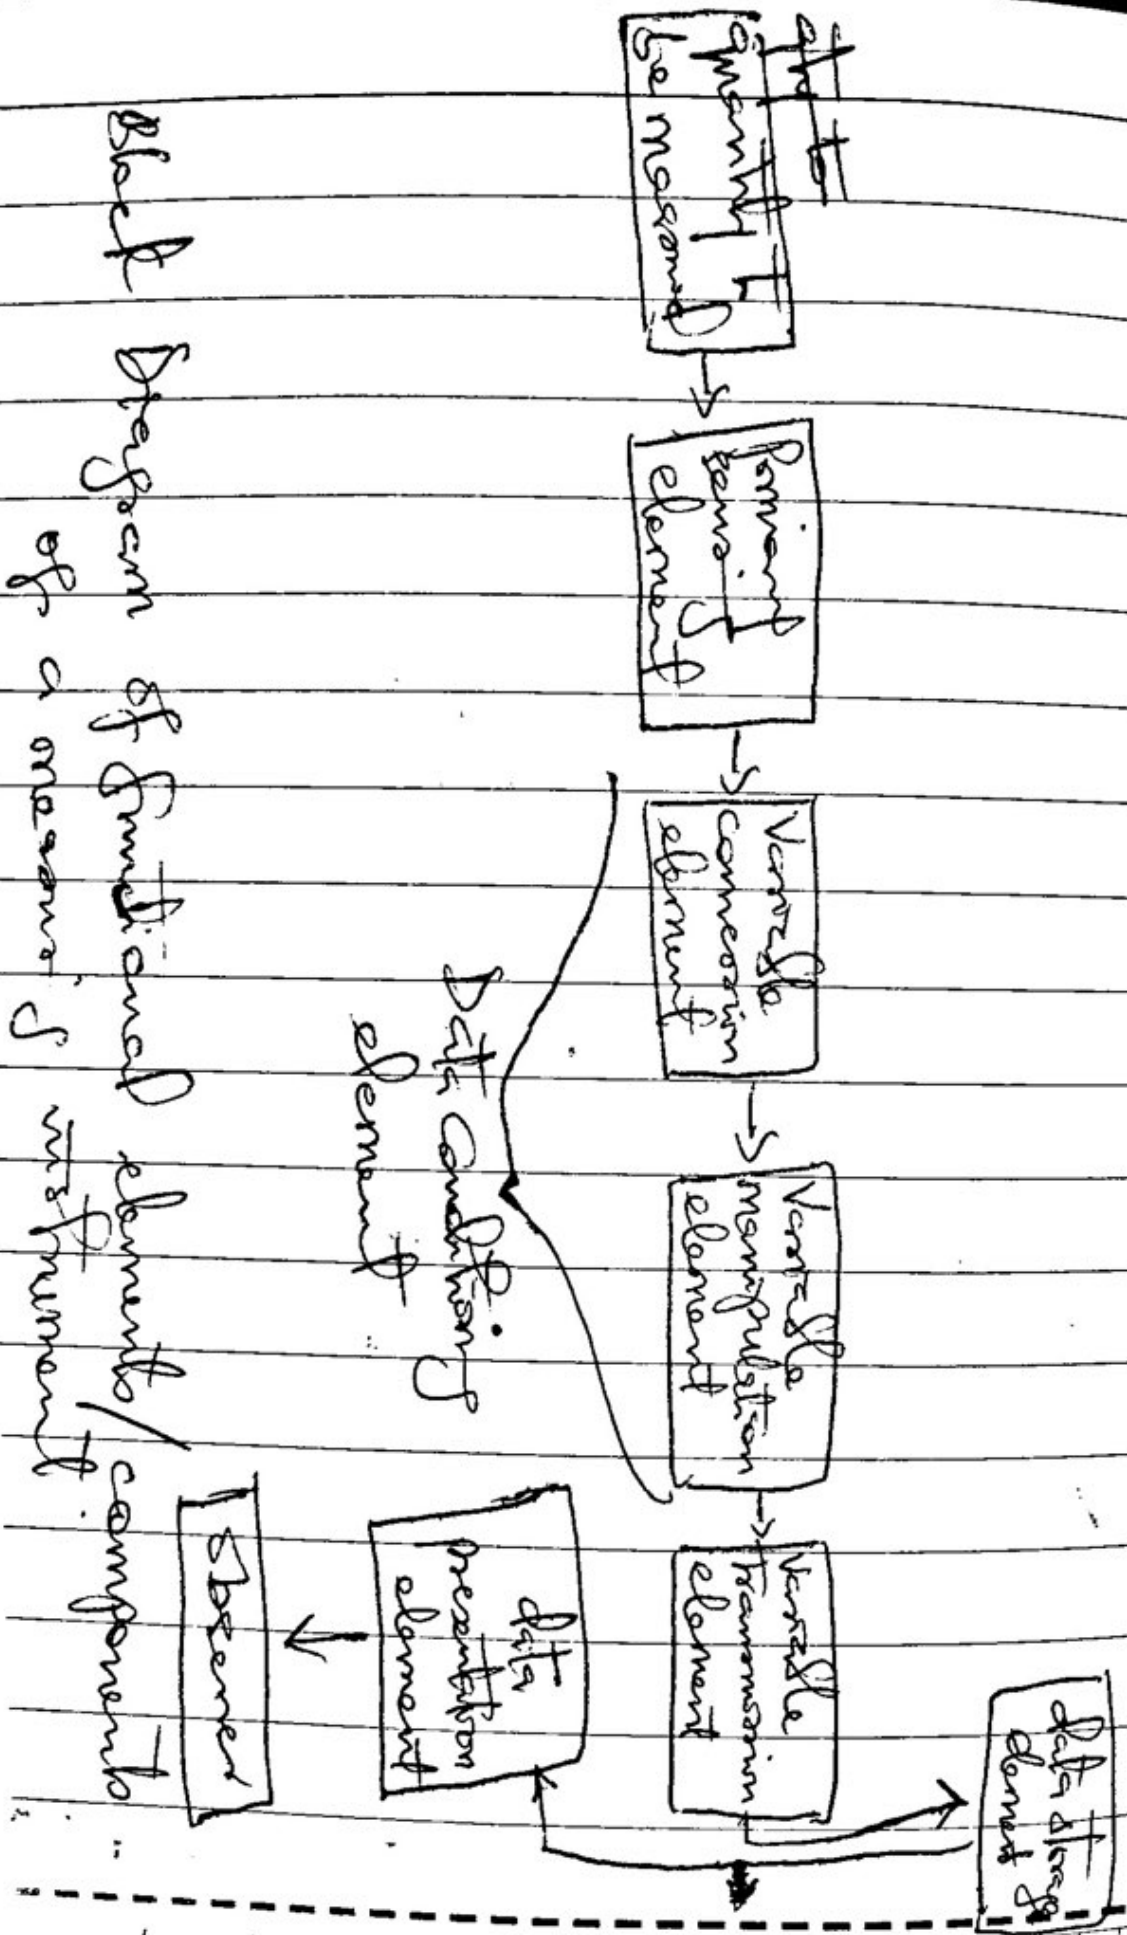 Quantity to
be measured
Primary
sensing
element
Variable
conversion
element
Variable
manipulation
element
Variable
transmission
element
data storage
element
Data Conditioning
element
data
presentation
element
Observer
Block Diagram of functional elements / components
of a measuring instrument.